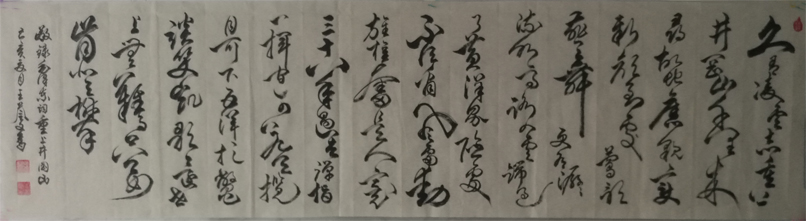 久有凌云志重上
井冈山千里来
尋故地舊貌變
新颜到处莺歌
燕舞更有潺潺
流水高路入云端
过了黄洋界险处
不须看风雷动
旌旗奋是人寰
三十八年过去弹指
一挥间可上九天揽
月可下五洋捉鳖
谈笑凯歌还世
上无难事只要
肯登攀
敬録毛泽东词重上井冈山
己亥夏月王